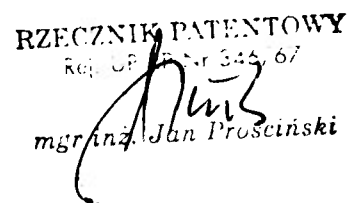 RZECZNIK PATENTOWY
Rej. UP PR Nr 346/67
mgr inż. Jan Prościński